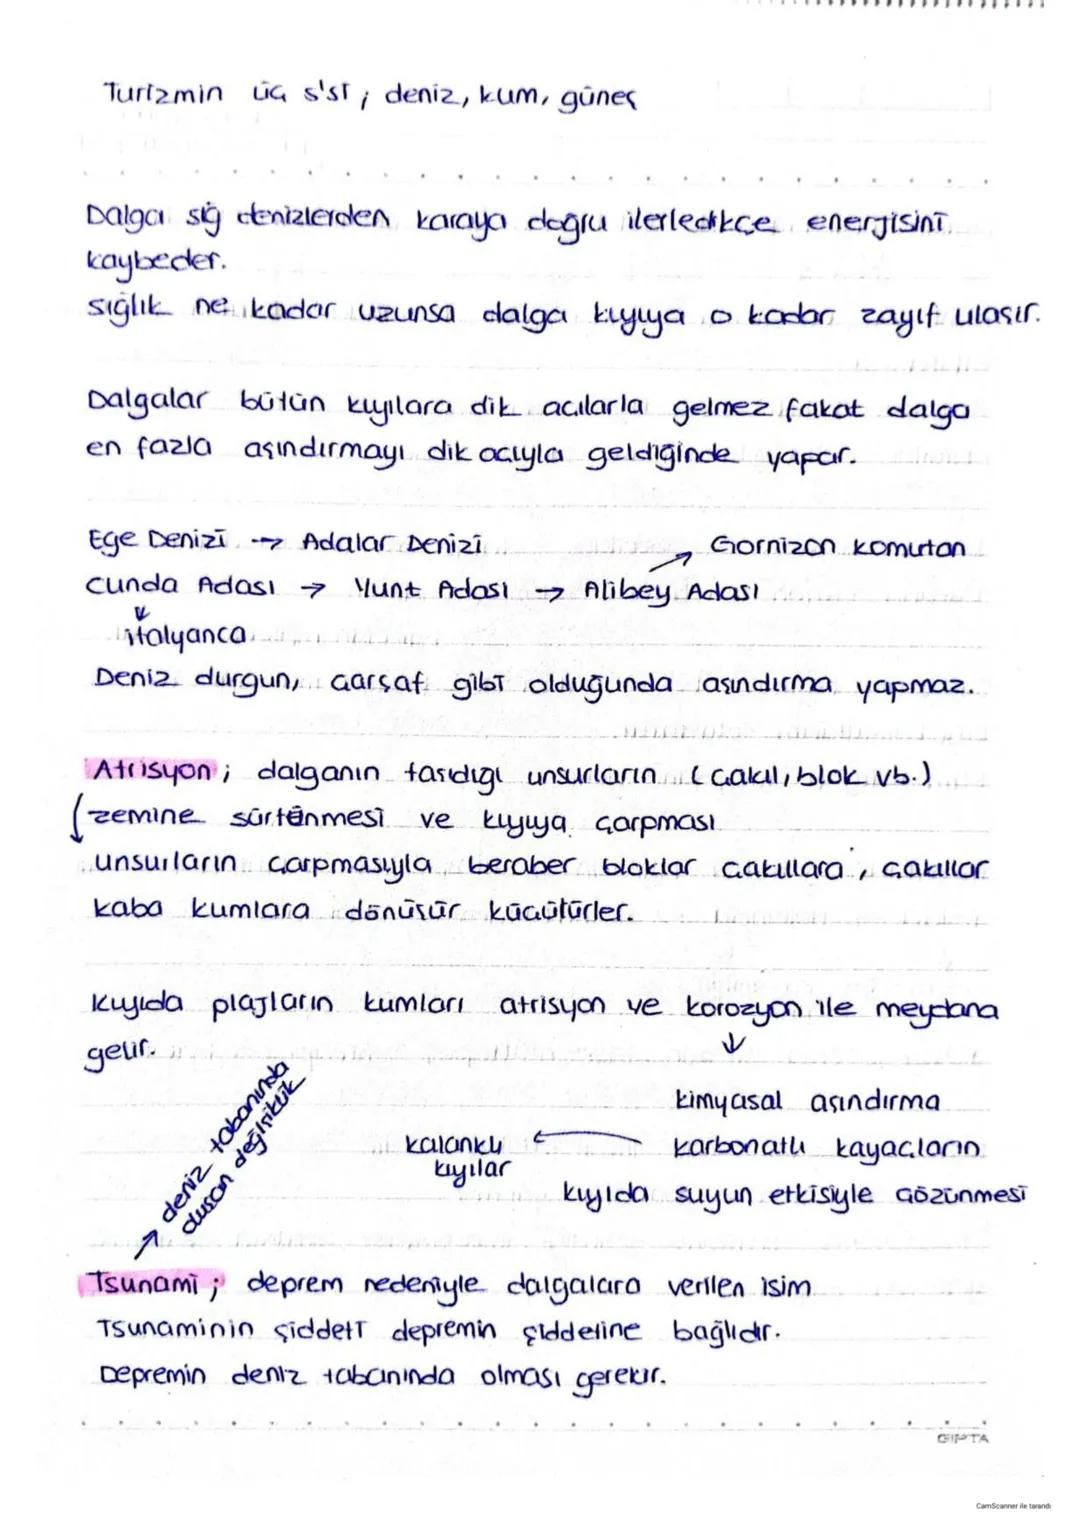 Turizmin üç s'si ; deniz, kum, güneş
Dalga sığ denizlerden karaya doğru ilerledikçe enerjisini
kaybeder.
sığlık ne kadar uzunsa dalga kıyıya o kadar zayıf ulaşır.
Dalgalar bütün kıyılara dik açılarla gelmez fakat dalga
en fazla aşındırmayı dik açıyla geldiğinde yapar.
Ege Denizi → Adalar Denizi
↗ Gornizon komutan
Cunda Adası → Yunt Adası → Alibey Adası
↓
italyanca
Deniz durgun, çarşaf gibi olduğunda aşındırma yapmaz.
Atrisyon ; dalganın taşıdığı unsurların (çakıl, blok vb.)
zemine sürtünmesi ve kıyıya çarpması
unsurların çarpmasıyla beraber bloklar çakıllara, çakıllar
kaba kumlara dönüşür küçütürler.
Kıyıda plajların kumları atrisyon ve korozyon ile meydana
gelir.
↓
kimyasal aşındırma
kalanklı ← karbonatlı kayaçların
kıyılar
kıyıda suyun etkisiyle çözünmesi
deniz tabanında
oluşan değişiklik
Tsunami ; deprem nedeniyle dalgalara verilen isim
Tsunaminin şiddeti depremin şiddetine bağlıdır.
Depremin deniz tabanında olması gerekir.
GIPTA
CamScanner ile tarandı